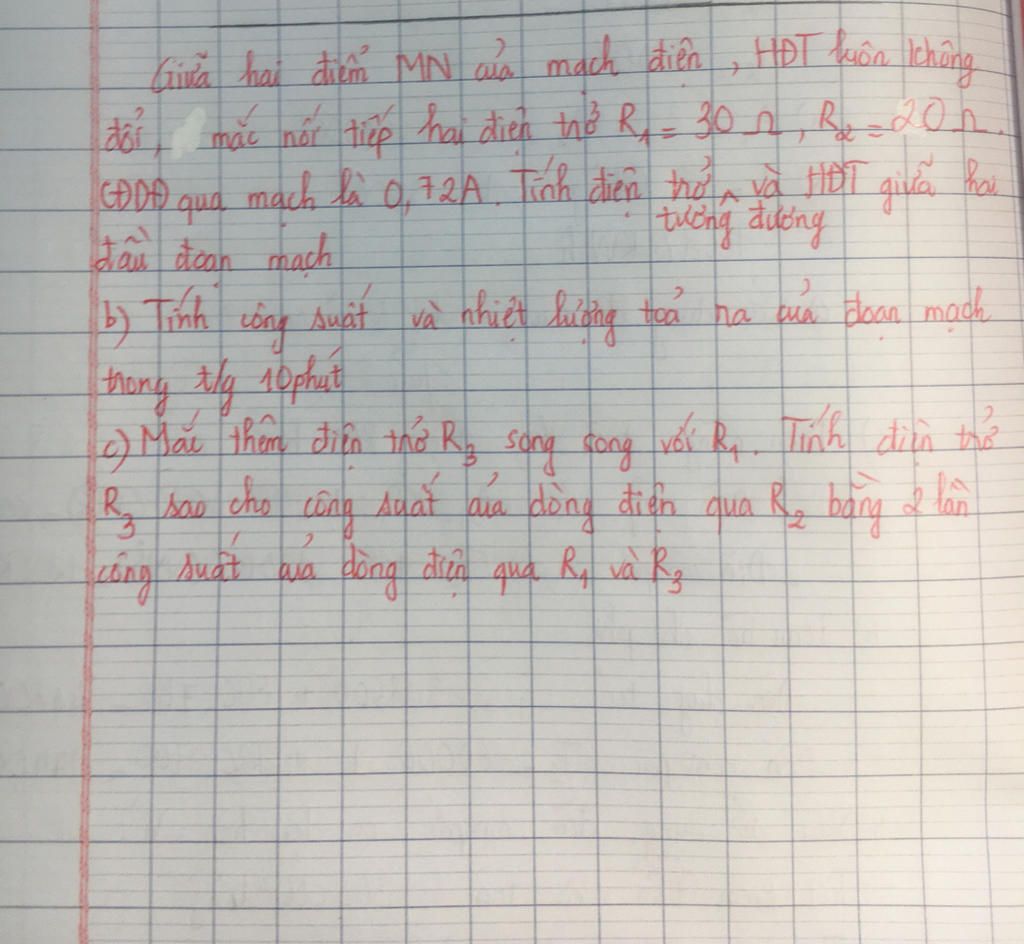 Giữa hai điểm MN của mạch điện, HĐT luôn không
đổi, mắc nối tiếp hai điện trở R₁ = 30 Ω, R₂ = 20 Ω.
CĐDĐ qua mạch là 0,72A. Tính điện trở ^ và HĐT giữa hai
tương đương
đầu đoạn mạch
b) Tính công suất và nhiệt lượng toả ra của đoạn mạch
trong t/g 10 phút
c) Mắc thêm điện trở R₃ song song với R₁. Tính điện trở
R₃ sao cho công suất của dòng điện qua R₂ bằng 2 lần
công suất của dòng điện qua R₁ và R₃